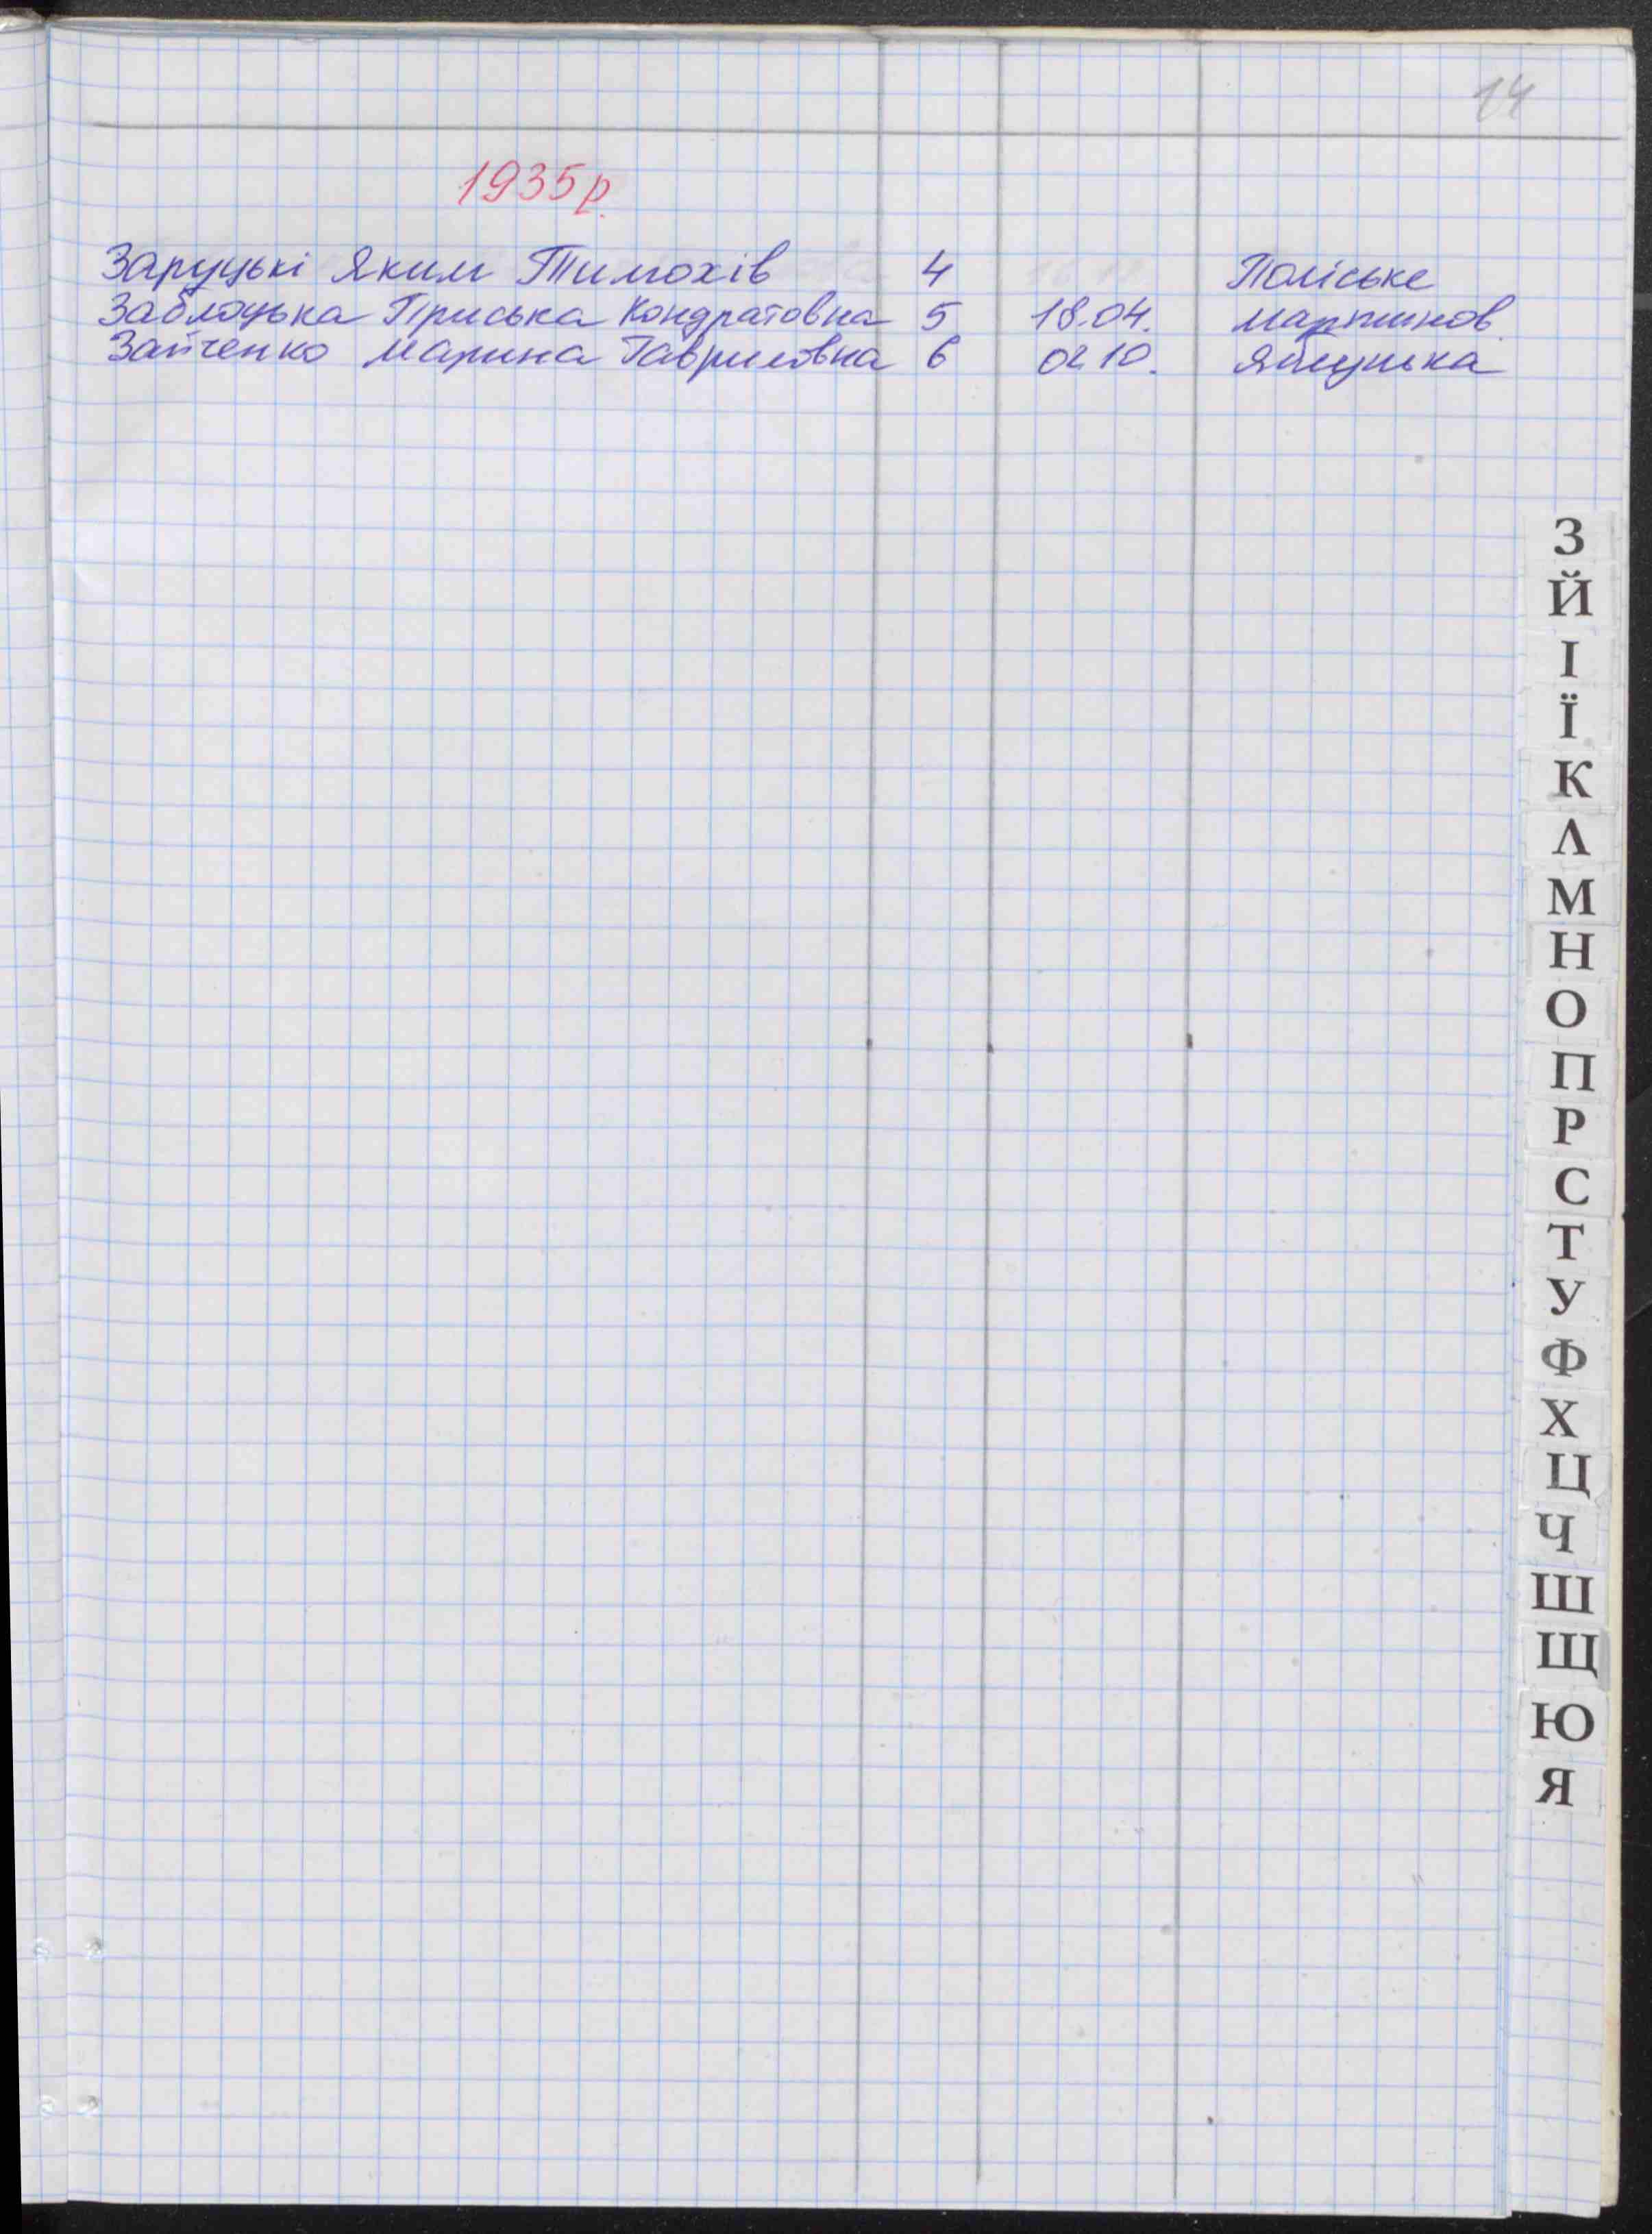 14
1935р.
Заруцькі Яким Тимохів 4 Поліське
Заблоцька Пріська Кондратовна 5 18.04. Мартинов.
Зайченко Марина Гавриловна 6 02 10. Яблунька
З
Й
І
Ї
К
Л
М
Н
О
П
Р
С
Т
У
Ф
Х
Ц
Ч
Ш
Щ
Ю
Я